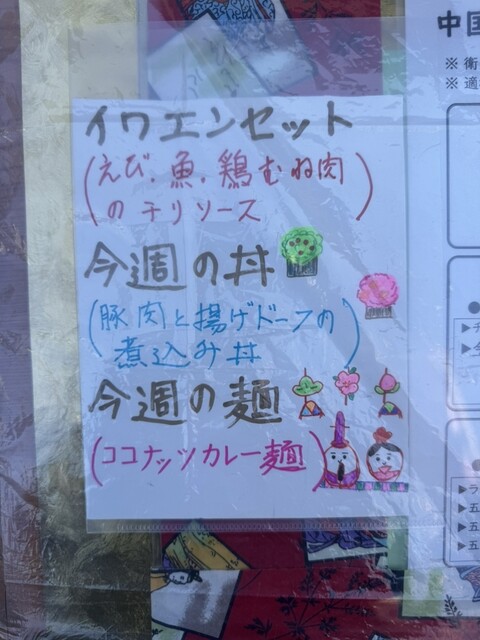 イワエンセット
(えび.魚.鶏むね肉
のチリソース)
今週の丼
(豚肉と揚げドーフの
煮込み丼)
今週の麺
(ココナッツカレー麺)
中国
※ 衛
※ 適
▶チ
▶ラ
▶五
▶五
▶五